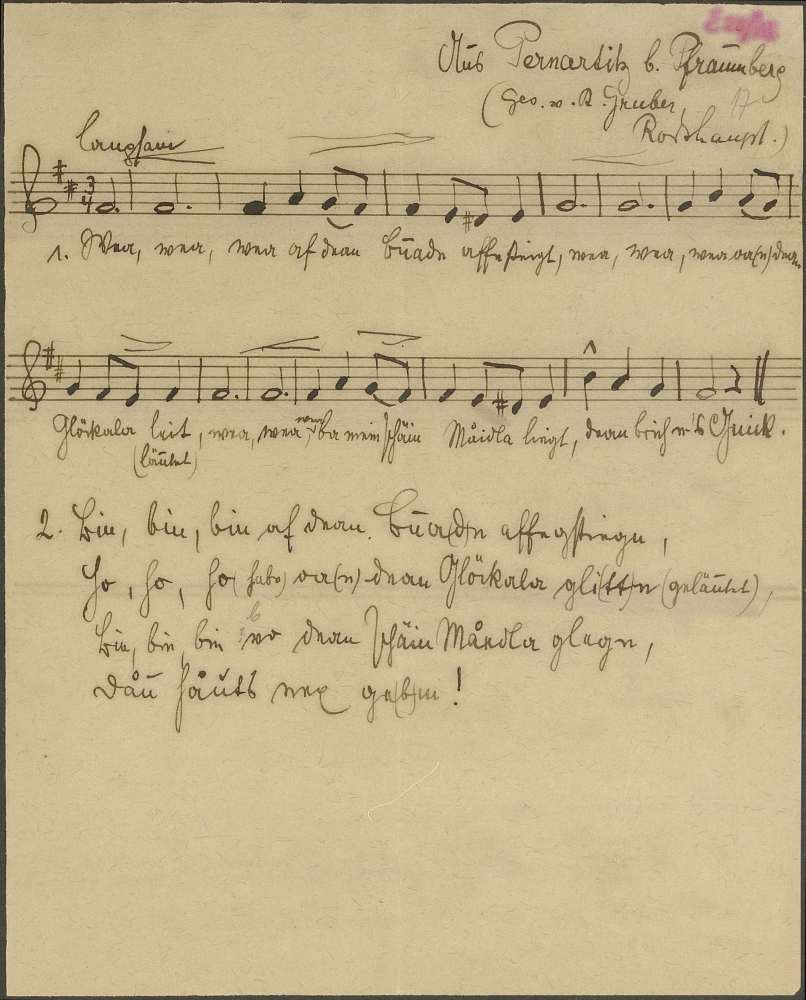 Aus Pernartitz b. Pfraumberg
(Ges. v. A. Gruber,
17
Roßhaupt.)
langsam
3
4
1. Wea, wea, wea af dean Buadn affesteigt, wea, wea, wea oa(n) dean
Glöckala leit, wea, wea, wea ba mein schäin Måidla liegt, dean brich e's Gnick.
(läutet)
2. Bin, bin, bin af dean Bua(d)n affegstiegn,
Ho, ho, ho (habe) oa(n) dean Glöckala gli(tt)n (geläutet),
Bin, bin, bin bo dean schäin Måidla glegn,
Dåu håuts nex ge(b)m!